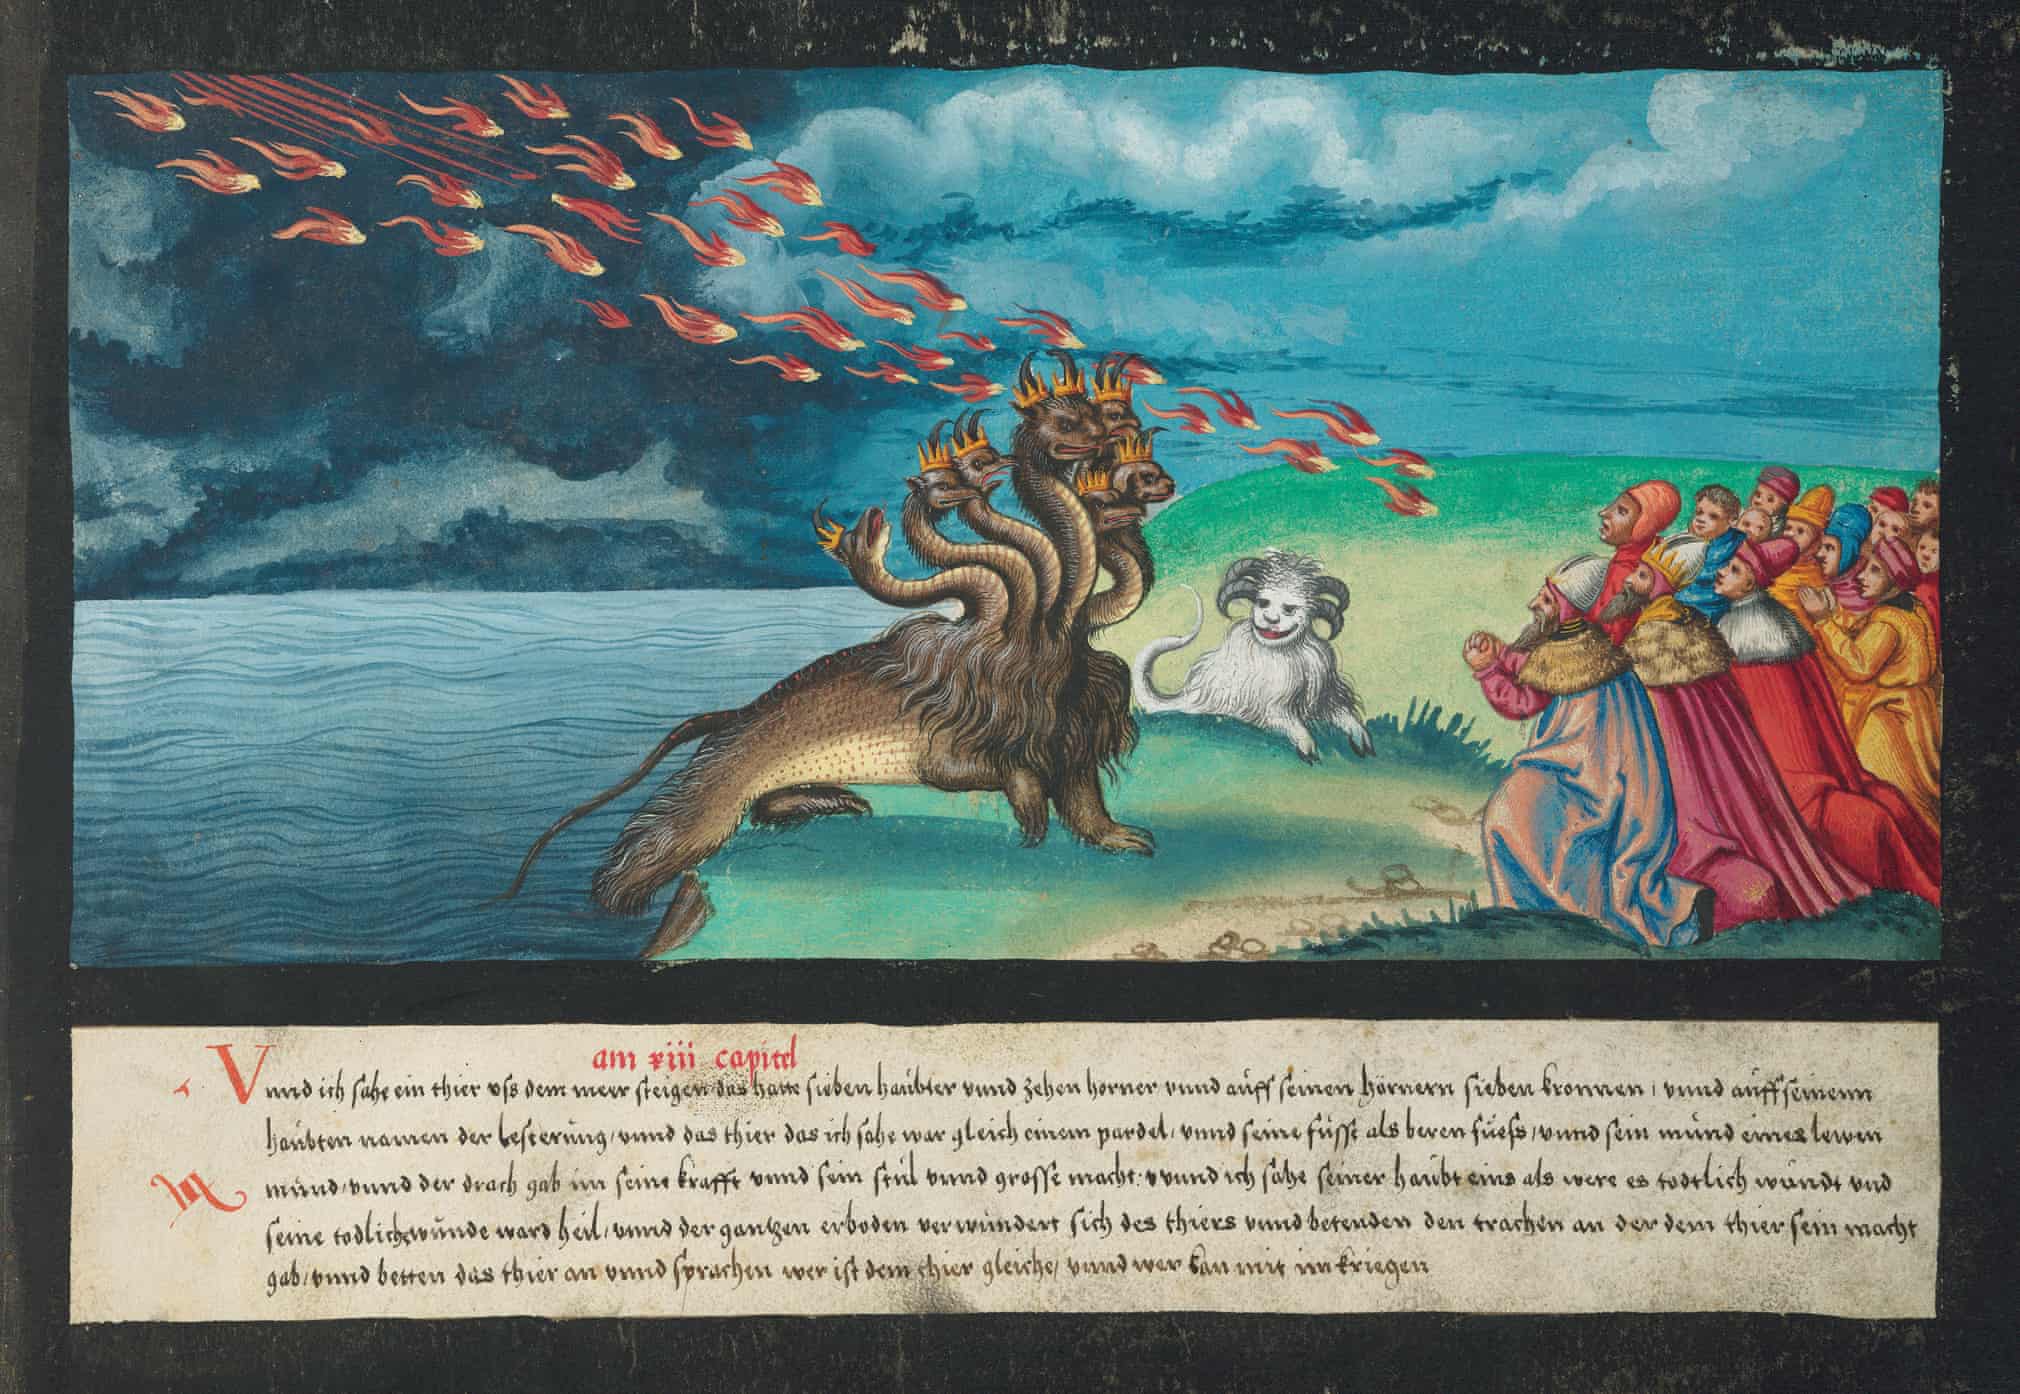 am xiii capitel
Vnnd ich sahe ein thier vss dem meer steigen das hatte sieben haübter vnnd zehen horner vnnd aüff seinen hörnern sieben kronnen / vnnd aüff seinenn
haübten namen der lesterüng / vnnd das thier das ich sahe war gleich einem pardel / vnnd seine füsse als beren füess / vnnd sein münd eines lewen
münd / vnnd der drach gab im seine krafft vnnd sein stül vnnd grosse macht : vnnd ich sahe seiner haübt eins als were es todtlich wündt vnd
seine todliche wünde ward heil / vnnd der gantzen erboden verwündert sich des thiers vnnd betenden den trachen an der dem thier sein macht
gab / vnnd betten das thier an vnnd sprachen wer ist dem thier gleiche / vnnd wer kan mit im kriegen